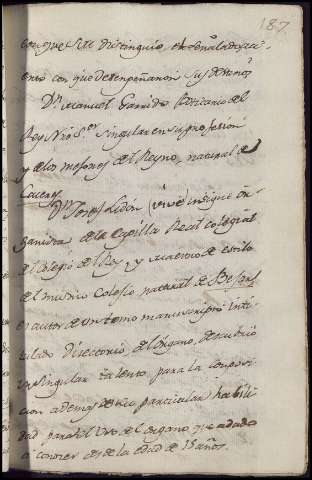 187
con que se le distinguio,
ento con que desenpeñaron sus
Dn. Manuel Garrido Boticario del
Rey Nro Sor. singular en su profesion
y de los mejores del Reyno, natural de
Caceres.
Dn. Josef Lidon (vive) insigne or-
ganista de la Capilla Real colegial
del Colegio del Rey, y maestro de estilo
del mismo Colegio natural de Bejar
es autor de un tomo manuscripto inti-
tulado Directorio del Organo, descubrio
un singular talento para la composi-
cion ademas de su particular habili
dad para el Uso del organo que a dado
a conocer desde la edad de 15 años.